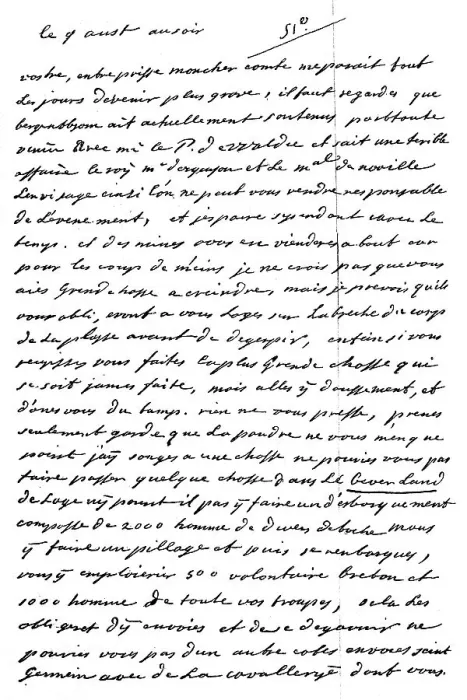 le 9 aust au soir 51e.
vostre, entreprisse mon cher comte me parait tout
les jours devenir plus grave, il faut regarder que
bergenobzom ait actuellement soutenus par toute
avec mr le P. de valdec et sait une terible
affaire le roy mr dargenson et le mal de noaille
lenvisage einsi lon ne peut vous rendre responsable
de levenement, et jespaire sependant avec le
temps. et des mines vous en vienderes a bout car
pour les coup de meins je ne crois pas que vous
aies grende chosse a creindre, mais je prevois quils
vous obli, eront a vous loger sur la breche du corps
de la plasse avant de degerpir, enfein si vous
reussisses vous faites la plus grende chosse qui
se soit james faite, mais alles y doussement, et
donés vous du temps. rien ne vous presse, prenes
seulement garde que la poudre ne vous menque
point jay songes a une chosse ne pouries vous pas
faire passer quelque chosse dans le Beverland
de loge ny pouroit il pas y faire un desborquement
composse de 2000 homme de divers deboche mous
y faire un pillage et puis se renborques,
vous y emploierier 500 volontaire breton et
1000 homme de toute vos troupes, sela les
obligeret dy envoier et de se degarnir ne
pouries vous pas dun autre cotes envoies saint
germein avec de la cavallerye dont vous.